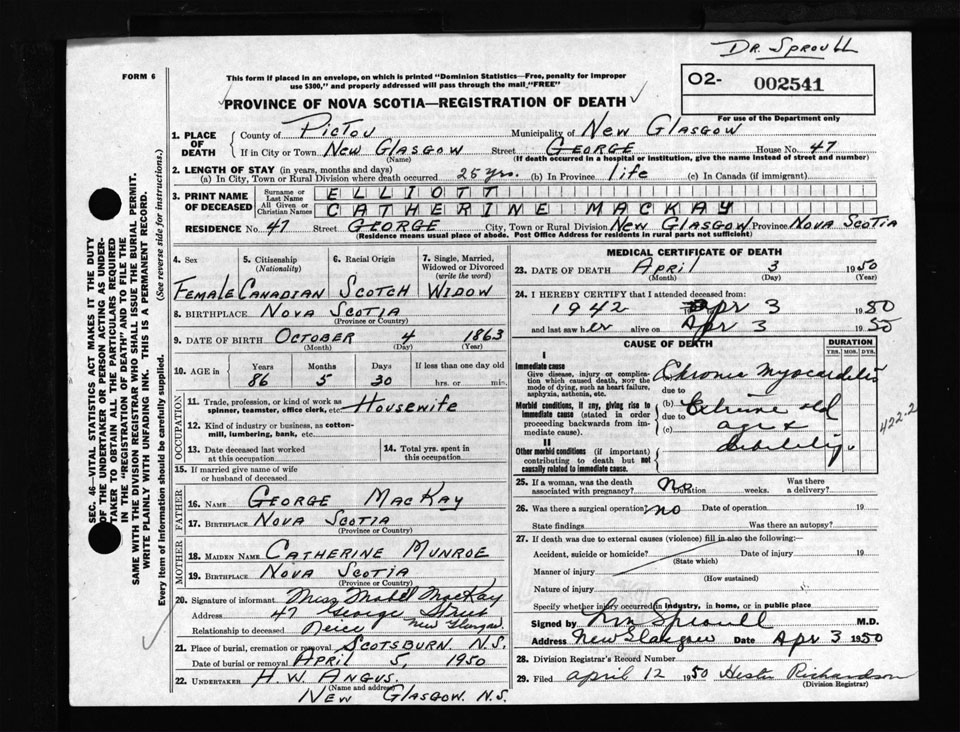 DR. SPROULL
FORM 6
This form if placed in an envelope, on which is printed "Dominion Statistics—Free, penalty for improper
use $300," and properly addressed will pass through the mail "FREE"
PROVINCE OF NOVA SCOTIA—REGISTRATION OF DEATH
02- 002541
For use of the Department only
SEC. 46—VITAL STATISTICS ACT MAKES IT THE DUTY
OF THE UNDERTAKER OR PERSON ACTING AS UNDER-
TAKER TO OBTAIN ALL THE PARTICULARS REQUIRED
IN THE "REGISTRATION OF DEATH" AND TO FILE THE
SAME WITH THE DIVISION REGISTRAR WHO SHALL ISSUE THE BURIAL PERMIT.
WRITE PLAINLY WITH UNFADING INK. THIS IS A PERMANENT RECORD.
Every item of information should be carefully supplied. (See reverse side for instructions.)
1. PLACE OF DEATH
County of PICTOU Municipality of NEW GLASGOW
If in City or Town NEW GLASGOW Street GEORGE House No. 47
(Name) (If death occurred in a hospital or institution, give the name instead of street and number)
2. LENGTH OF STAY (in years, months and days)
(a) In City, Town or Rural Division where death occurred 25 yrs. (b) In Province life (c) In Canada (if immigrant)
3. PRINT NAME OF DECEASED
Surname or Last Name ELLIOTT
All Given or Christian Names CATHERINE MACKAY
RESIDENCE No. 47 Street GEORGE City, Town or Rural Division NEW GLASGOW Province NOVA SCOTIA
(Residence means usual place of abode. Post Office Address for residents in rural parts not sufficient)
4. Sex 5. Citizenship (Nationality) 6. Racial Origin 7. Single, Married, Widowed or Divorced (write the word)
FEMALE CANADIAN SCOTCH WIDOW
8. BIRTHPLACE NOVA SCOTIA
(Province or Country)
9. DATE OF BIRTH OCTOBER 4 1863
(Month) (Day) (Year)
10. AGE in Years Months Days If less than one day old
86 5 30 hrs. or min.
OCCUPATION
11. Trade, profession, or kind of work as
spinner, teamster, office clerk, etc. HOUSEWIFE
12. Kind of industry or business, as cotton-
mill, lumbering, bank, etc.
13. Date deceased last worked
at this occupation
14. Total yrs. spent in
this occupation
15. If married give name of wife
or husband of deceased
FATHER
16. NAME GEORGE MACKAY
17. BIRTHPLACE NOVA SCOTIA
(Province or Country)
MOTHER
18. MAIDEN NAME CATHERINE MUNROE
19. BIRTHPLACE NOVA SCOTIA
(Province or Country)
20. Signature of informant Miss Mabel MacKay
Address 47 George Street
New Glasgow.
Relationship to deceased Neice
21. Place of burial, cremation or removal SCOTSBURN. N.S.
Date of burial or removal APRIL 5, 1950
22. UNDERTAKER H. W. ANGUS.
(Name and address)
NEW GLASGOW. N.S.
MEDICAL CERTIFICATE OF DEATH
23. DATE OF DEATH April 3 1950
(Month) (Day) (Year)
24. I HEREBY CERTIFY that I attended deceased from:
1942 Apr 3 1950
and last saw her alive on Apr 3 1950
CAUSE OF DEATH
DURATION
YRS. MOS. DYS.
I
Immediate cause
Give disease, injury or complica-
tion which caused death, NOT the
mode of dying, such as heart failure,
asphyxia, asthenia, etc.
Chronic Myocarditis
due to
Morbid conditions, if any, giving rise to
immediate cause (stated in order
proceeding backwards from im-
mediate cause).
(b) Extreme old
due to
(c) age &
debility
422-2
II
Other morbid conditions (if important)
contributing to death but not
causally related to immediate cause.
25. If a woman, was the death
associated with pregnancy? no Duration weeks. Was there
a delivery?
26. Was there a surgical operation? no Date of operation 19
State findings Was there an autopsy?
27. If death was due to external causes (violence) fill in also the following:—
Accident, suicide or homicide? Date of injury 19
(State which)
Manner of injury
(How sustained)
Nature of injury
Specify whether injury occurred in industry, in home, or in public place
Signed by Sproull M.D.
Address New Glasgow Date Apr 3 1950
28. Division Registrar's Record Number
29. Filed april 12 1950 Hester Richardson
(Division Registrar)